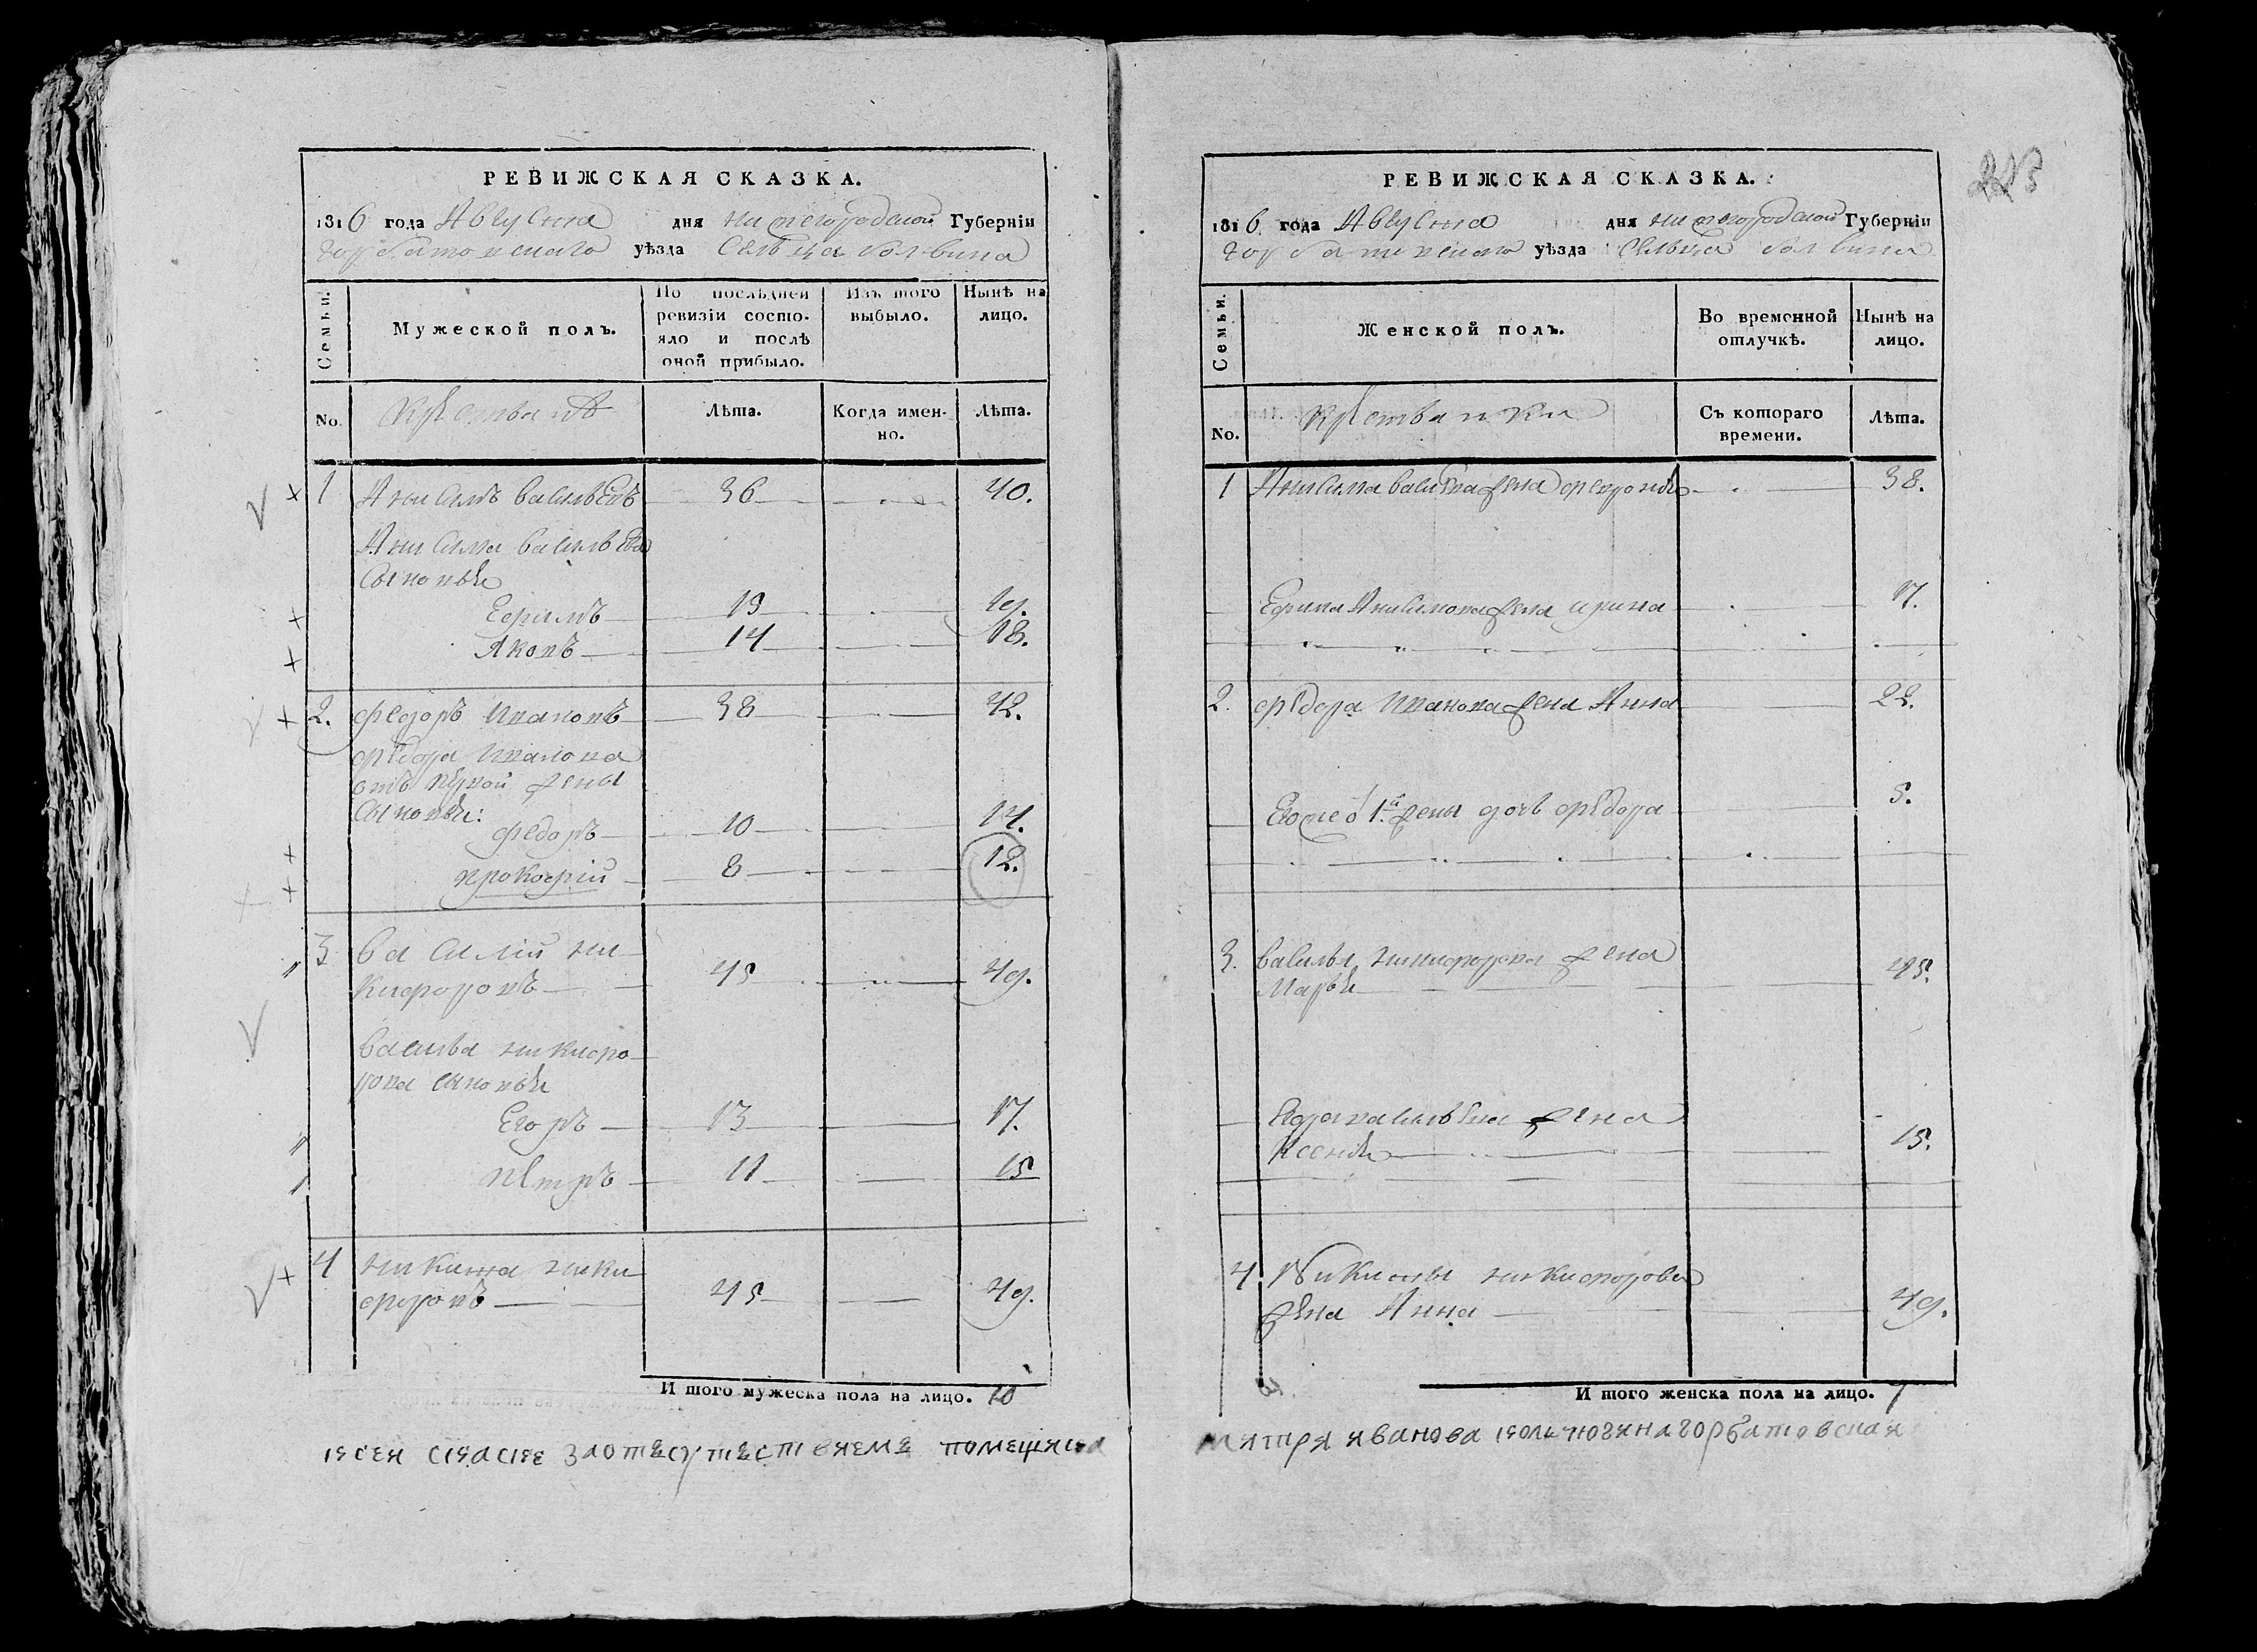 РЕВИЖСКАЯ СКАЗКА.
1816 года Августа дня нижегородской Губерніи
горбатовскаго уѣзда Сельца болвина
Семьи.
Мужеской полъ.
По послѣдней ревизіи состояло и послѣ оной прибыло.
Изъ того выбыло.
Нынѣ на лицо.
No.
Крестьянѣ
Лѣта.
Когда именно.
Лѣта.
1 Анисимъ васильевъ 36 40.
Анисима васильева
Сыновья
Ефимъ 15 19.
Яковъ 14 18.
2. федоръ Ивановъ 38 42.
федора Иванова
отъ первой жены
Сыновья:
федоръ 10 14.
прокофій 8 12.
3 василій ни
кифоровъ 45 49.
василья никифо
рова сыновья
Егоръ 13 17.
петръ 11 15
4 никита ники
форовъ 45 49.
И того мужеска пола на лицо. 10
РЕВИЖСКАЯ СКАЗКА.
1816 года Августа дня нижегородской Губерніи
горбатовскаго уѣзда Сельца болвина
Семьи.
Женской полъ.
Во временной отлучкѣ.
Нынѣ на лицо.
No.
крестьянки
Съ котораго времени.
Лѣта.
1 Анисима васильева жена 38.
Ефима Анисимова жена ирина 17.
2. федора Иванова жена Анна 22.
Егоже о 1й жены дочь федора 5.
3. василья никифорова жена
Марья 45.
Егора васильева жена
Ксенья 15.
4. Никиты никифорова
жена Анна 49.
И того женска пола на лицо. 7
ксей скаске заотъсутъствиемъ помещика
митрия иванова горбатовская